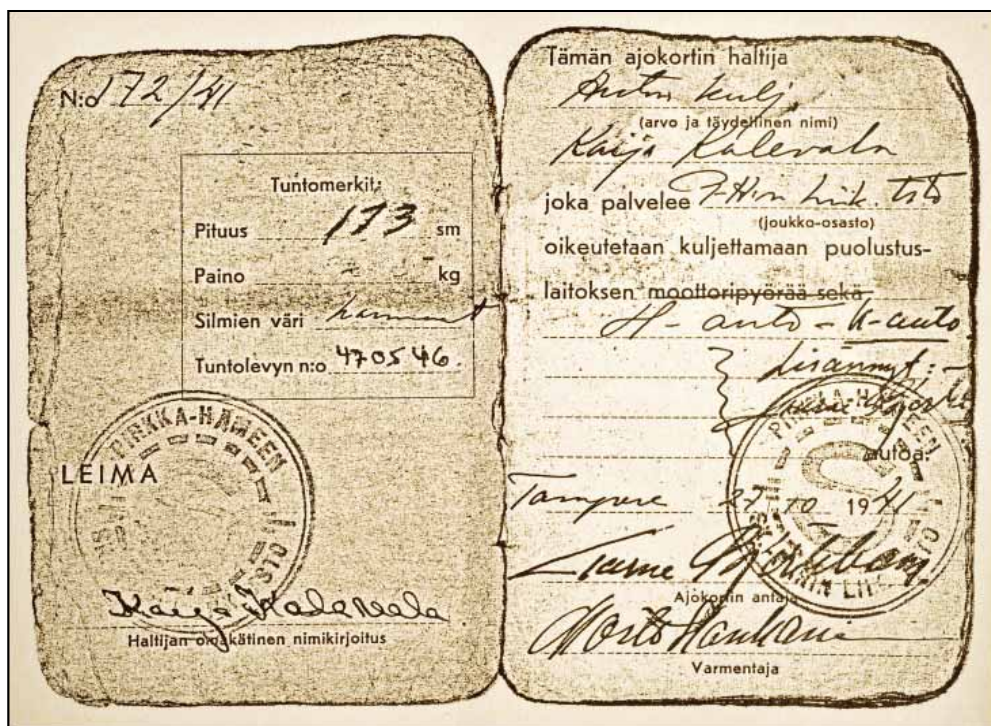 N:o 172/41
Tuntomerkit:
Pituus 173 sm
Paino - kg
Silmien väri harmaat
Tuntolevyn n:o 470546.
PIRKKA-HÄMEEN
LEIMA
Kaija Kalevala
Haltijan omakätinen nimikirjoitus
Tämän ajokortin haltija
Auton kulj.
(arvo ja täydellinen nimi)
Kaija Kalevala
joka palvelee
(joukko-osasto)
oikeutetaan kuljettamaan puolustus-
laitoksen moottoripyörää sekä
H-auto - K-auto
Lisännyt:
autoa.
PIRKKA-HÄMEEN
Tampere 27.10 1941
Ajokortin antaja
Varmentaja